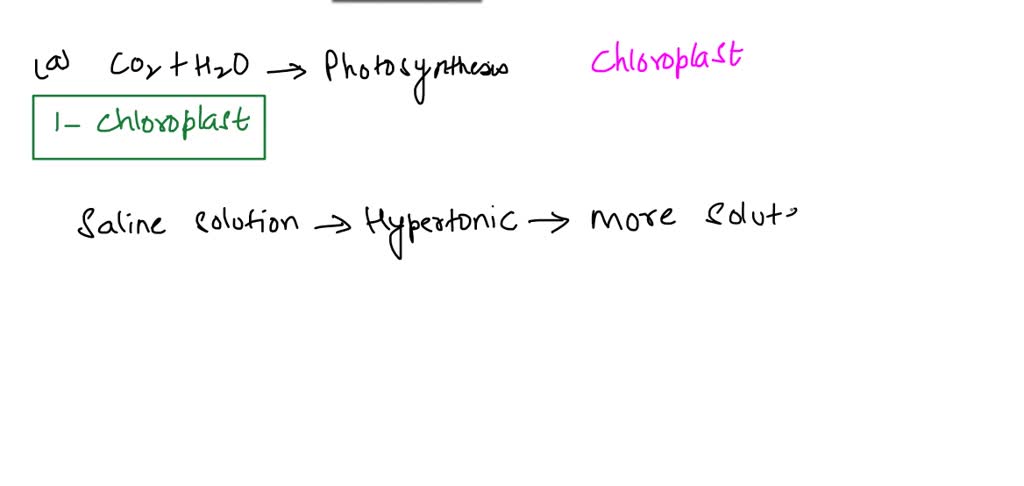 (a) CO2 + H2O → Photosynthesis Chloroplast
1- Chloroplast
Saline solution → Hypertonic → more solut